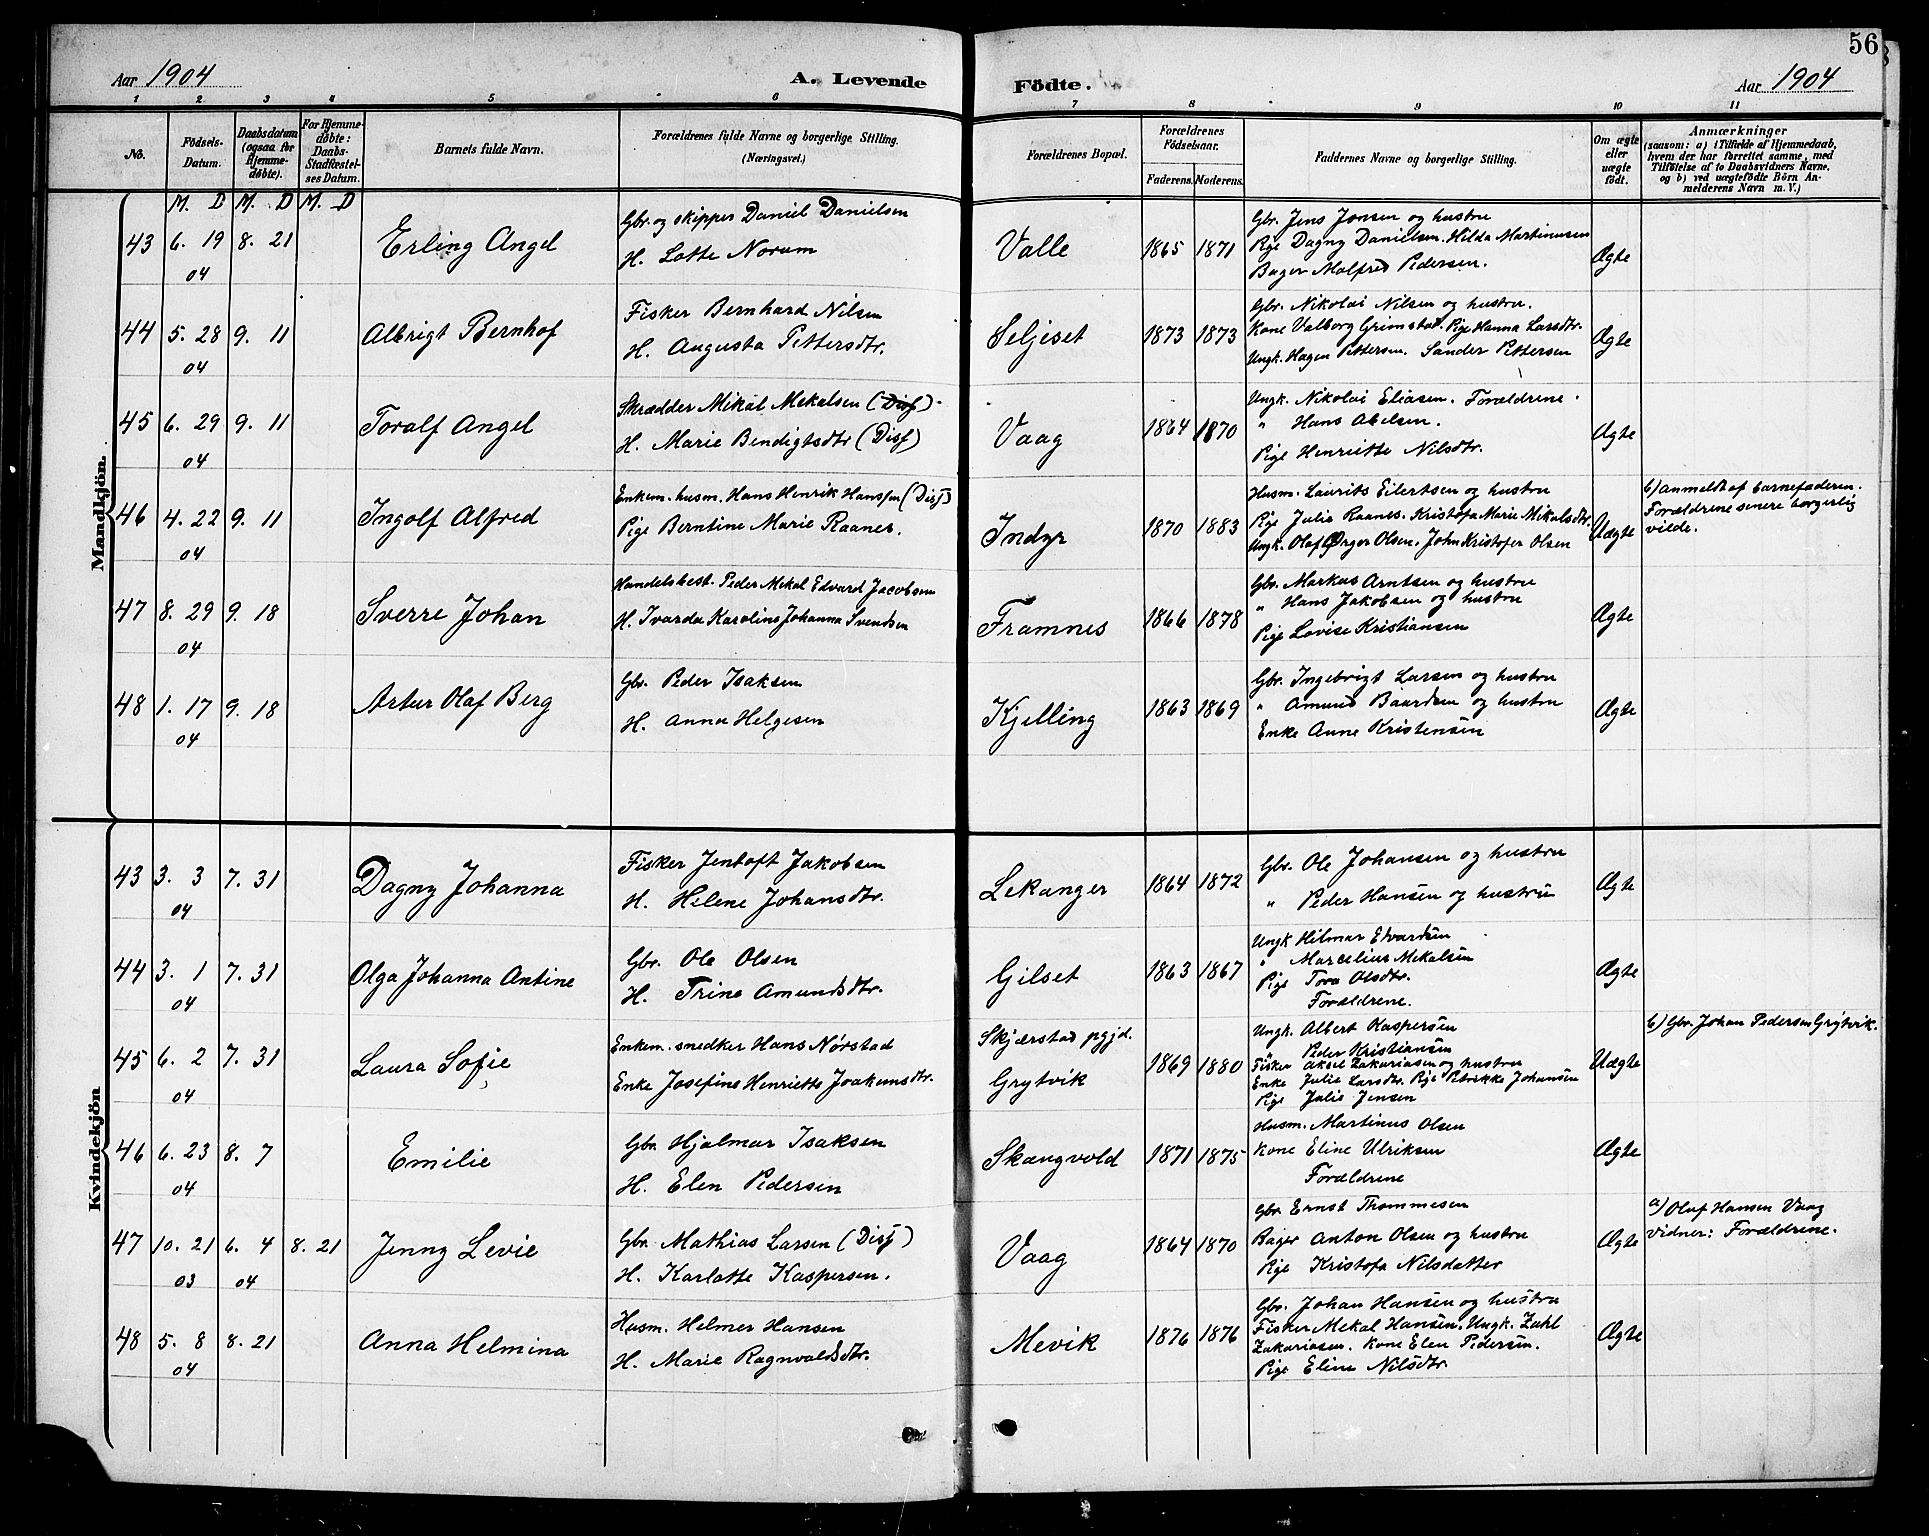 56
Aar 1904 A. Levende Födte. Aar 1904
1 2 3 4 5 6 7 8 9 10 11
No.
Födsels-Datum.
Daabsdatum (ogsaa for Hjemmedöbte).
For Hjemmedöbte: Daabs-Stadfæstelses Datum.
Barnets fulde Navn.
Forældrenes fulde Navne og borgerlige Stilling. (Næringsvei.)
Forældrenes Bopæl.
Forældrenes Födselsaar.
Faderens. Moderens.
Faddernes Navne og borgerlige Stilling.
Om ægte eller uægte födt.
Anmærkninger
(saasom: a) i Tilfælde af Hjemmedaab, hvem der har forrettet samme, med Tilföielse af to Daabsvidners Navne, og b) ved uægtefödte Börn Anmelderens Navn m. V.)
M. D M. D M. D
Mandkjön.
43 6. 19 04 8. 21 Erling Angel
Gbr. og skipper Daniel Danielsen
H. Lotte Norum
Valle 1865 1871
Gbr. Jens Jonsen og hustru
Pige Dagny Danielsen. Hilda Martinusen
Bager Malfred Pedersen.
Ægte
44 5. 28 04 9. 11 Albrigt Bernhof
Fisker Bernhard Nilsen
H. Augusta Pettersdtr.
Seljeset 1873 1873
Gbr. Nikolai Nilsen og hustru.
Kone Valborg Grimstad. Pige Hanna Larsdtr.
Ungk. Hagen Pettersen. Sander Pettersen
Ægte
45 6. 29 04 9. 11 Toralf Angel
Skrædder Mikal Mekalsen (Disf)
H. Marie Bendigtsdtr (Disf)
Vaag 1864 1870
Ungk. Nikolai Eliasen. Forældrene.
" Hans Abelsen.
Pige Henriette Nilsdtr.
Ægte
46 4. 22 04 9. 11 Ingolf Alfred
Enkem. husm. Hans Henrik Hanssen (Disf)
Pige Berntine Marie Raanes.
Indyr 1870 1883
Husm. Laurits Eilertsen og hustru
Pige Julie Raanes. Kristofa Marie Mikalsdtr.
Ungk. Olaf Ørger Olsen. John Kristofer Olsen
Uægte
b) Anmeldt af barnefaderen.
Forældrene senere borgerlig
vilde.
47 8. 29 04 9. 18 Sverre Johan
Handelsbest. Peder Mekal Edvard Jacobsen
H. Ivarda Karoline Johanna Svendsen
Framnes 1866 1878
Gbr. Markus Arntsen og hustru
" Hans Jakobsen og hustru
Pige Lovise Kristiansen
Ægte
48 1. 17 04 9. 18 Artur Olaf Berg
Gbr. Peder Isaksen
H. Anna Helgesen
Kjelling 1863 1869
Gbr. Ingebrigt Larsen og hustru
" Amund Baardsen og hustru
Enke Anne Kristensen
Ægte
Kvindekjön
43 3. 3 04 7. 31 Dagny Johanna
Fisker Jentoft Jakobsen
H. Helene Johansdtr.
Lekanger 1864 1872
Gbr. Ole Johansen og hustru
" Peder Hansen og hustru
Ægte
44 3. 1 04 7. 31 Olga Johanna Antine
Gbr. Ole Olsen
H. Trine Amundsdtr.
Gilset 1863 1867
Ungk Hilmar Edvardsen
" Marcelius Mekalsen
Pige Tora Olsdtr.
Forældrene.
Ægte
45 6. 2 04 7. 31 Laura Sofie
Enkem. snedker Hans Nørstad
Enke Josefine Henriette Joakimsdtr.
Skjærstad pgjd.
Grytvik 1869 1880
Ungk. Albert Kaspersen
" Peder Kristiansen
Fisker Aksel Zakariasen og hustru
Enke Julie Larsdtr. Pige Petrikke Johansen
Pige Julie Jensen
Uægte
b) Gbr. Johan Pedersen Grytvik.
46 6. 23 04 8. 7 Emilie
Gbr. Hjalmar Isaksen
H. Elen Pedersen
Skangvold 1871 1875
Husm. Martinus Olsen
Kone Eline Ulriksen
Forældrene
Ægte
47 10. 21 03 6. 4 04 8. 21 Jenny Levie
Gbr. Mathias Larsen (Disf)
H. Karlotte Kaspersen.
Vaag 1864 1870
Gbr. Ernst Thommesen
Bager Anton Olsen og hustru
Pige Kristofa Nilsdatter
Ægte
a) Oluf Hansen Vaag
Vidner: Forældrene.
48 5. 8 04 8. 21 Anna Helmina
Husm. Helmer Hansen
H. Marie Ragnvaldsdtr.
Mevik 1876 1876
Gbr. Johan Hansen og hustru
Fisker Mekal Hansen. Ungk. Zahl
Zakariasen. Kone Elen Pedersen.
Pige Eline Nilsdtr.
Ægte